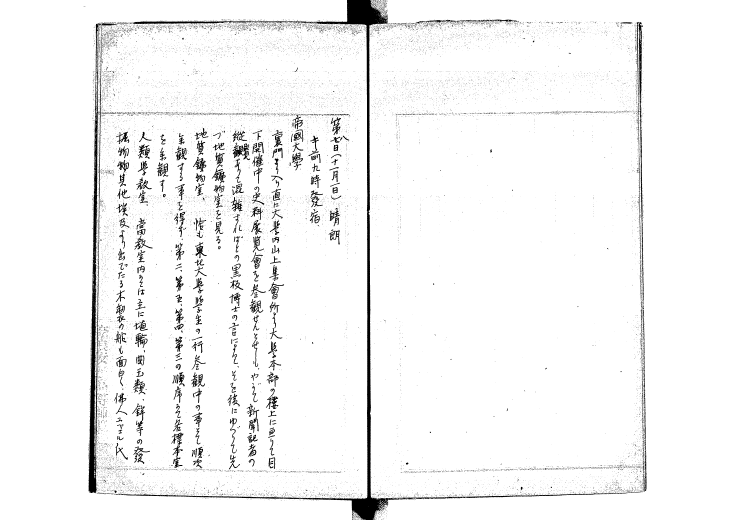 第八日(十一月一日)晴朗
午前九時發宿
帝國大學
裏門より入り直に大學内山上集會所より大學本部の樓上に至りて目
下開催中の史料展覧會を参觀せんとせしも、やがて新聞記者の
縦覧ありて混雑すればとの黒板博士の言により、そを後にゆづりて先
づ地質鑛物室を見る。
地質鑛物室、恰も東北大學學生の一行参觀中の事とて順次
参觀する事を得ず、第二、第五、第四、第三の順序にて各標本室
を参觀す。
人類學教室、當教室内にては主に埴輪、曲玉類、鉾等の發
掘物其他埃及より出でたる木製の船も面白く、佛人